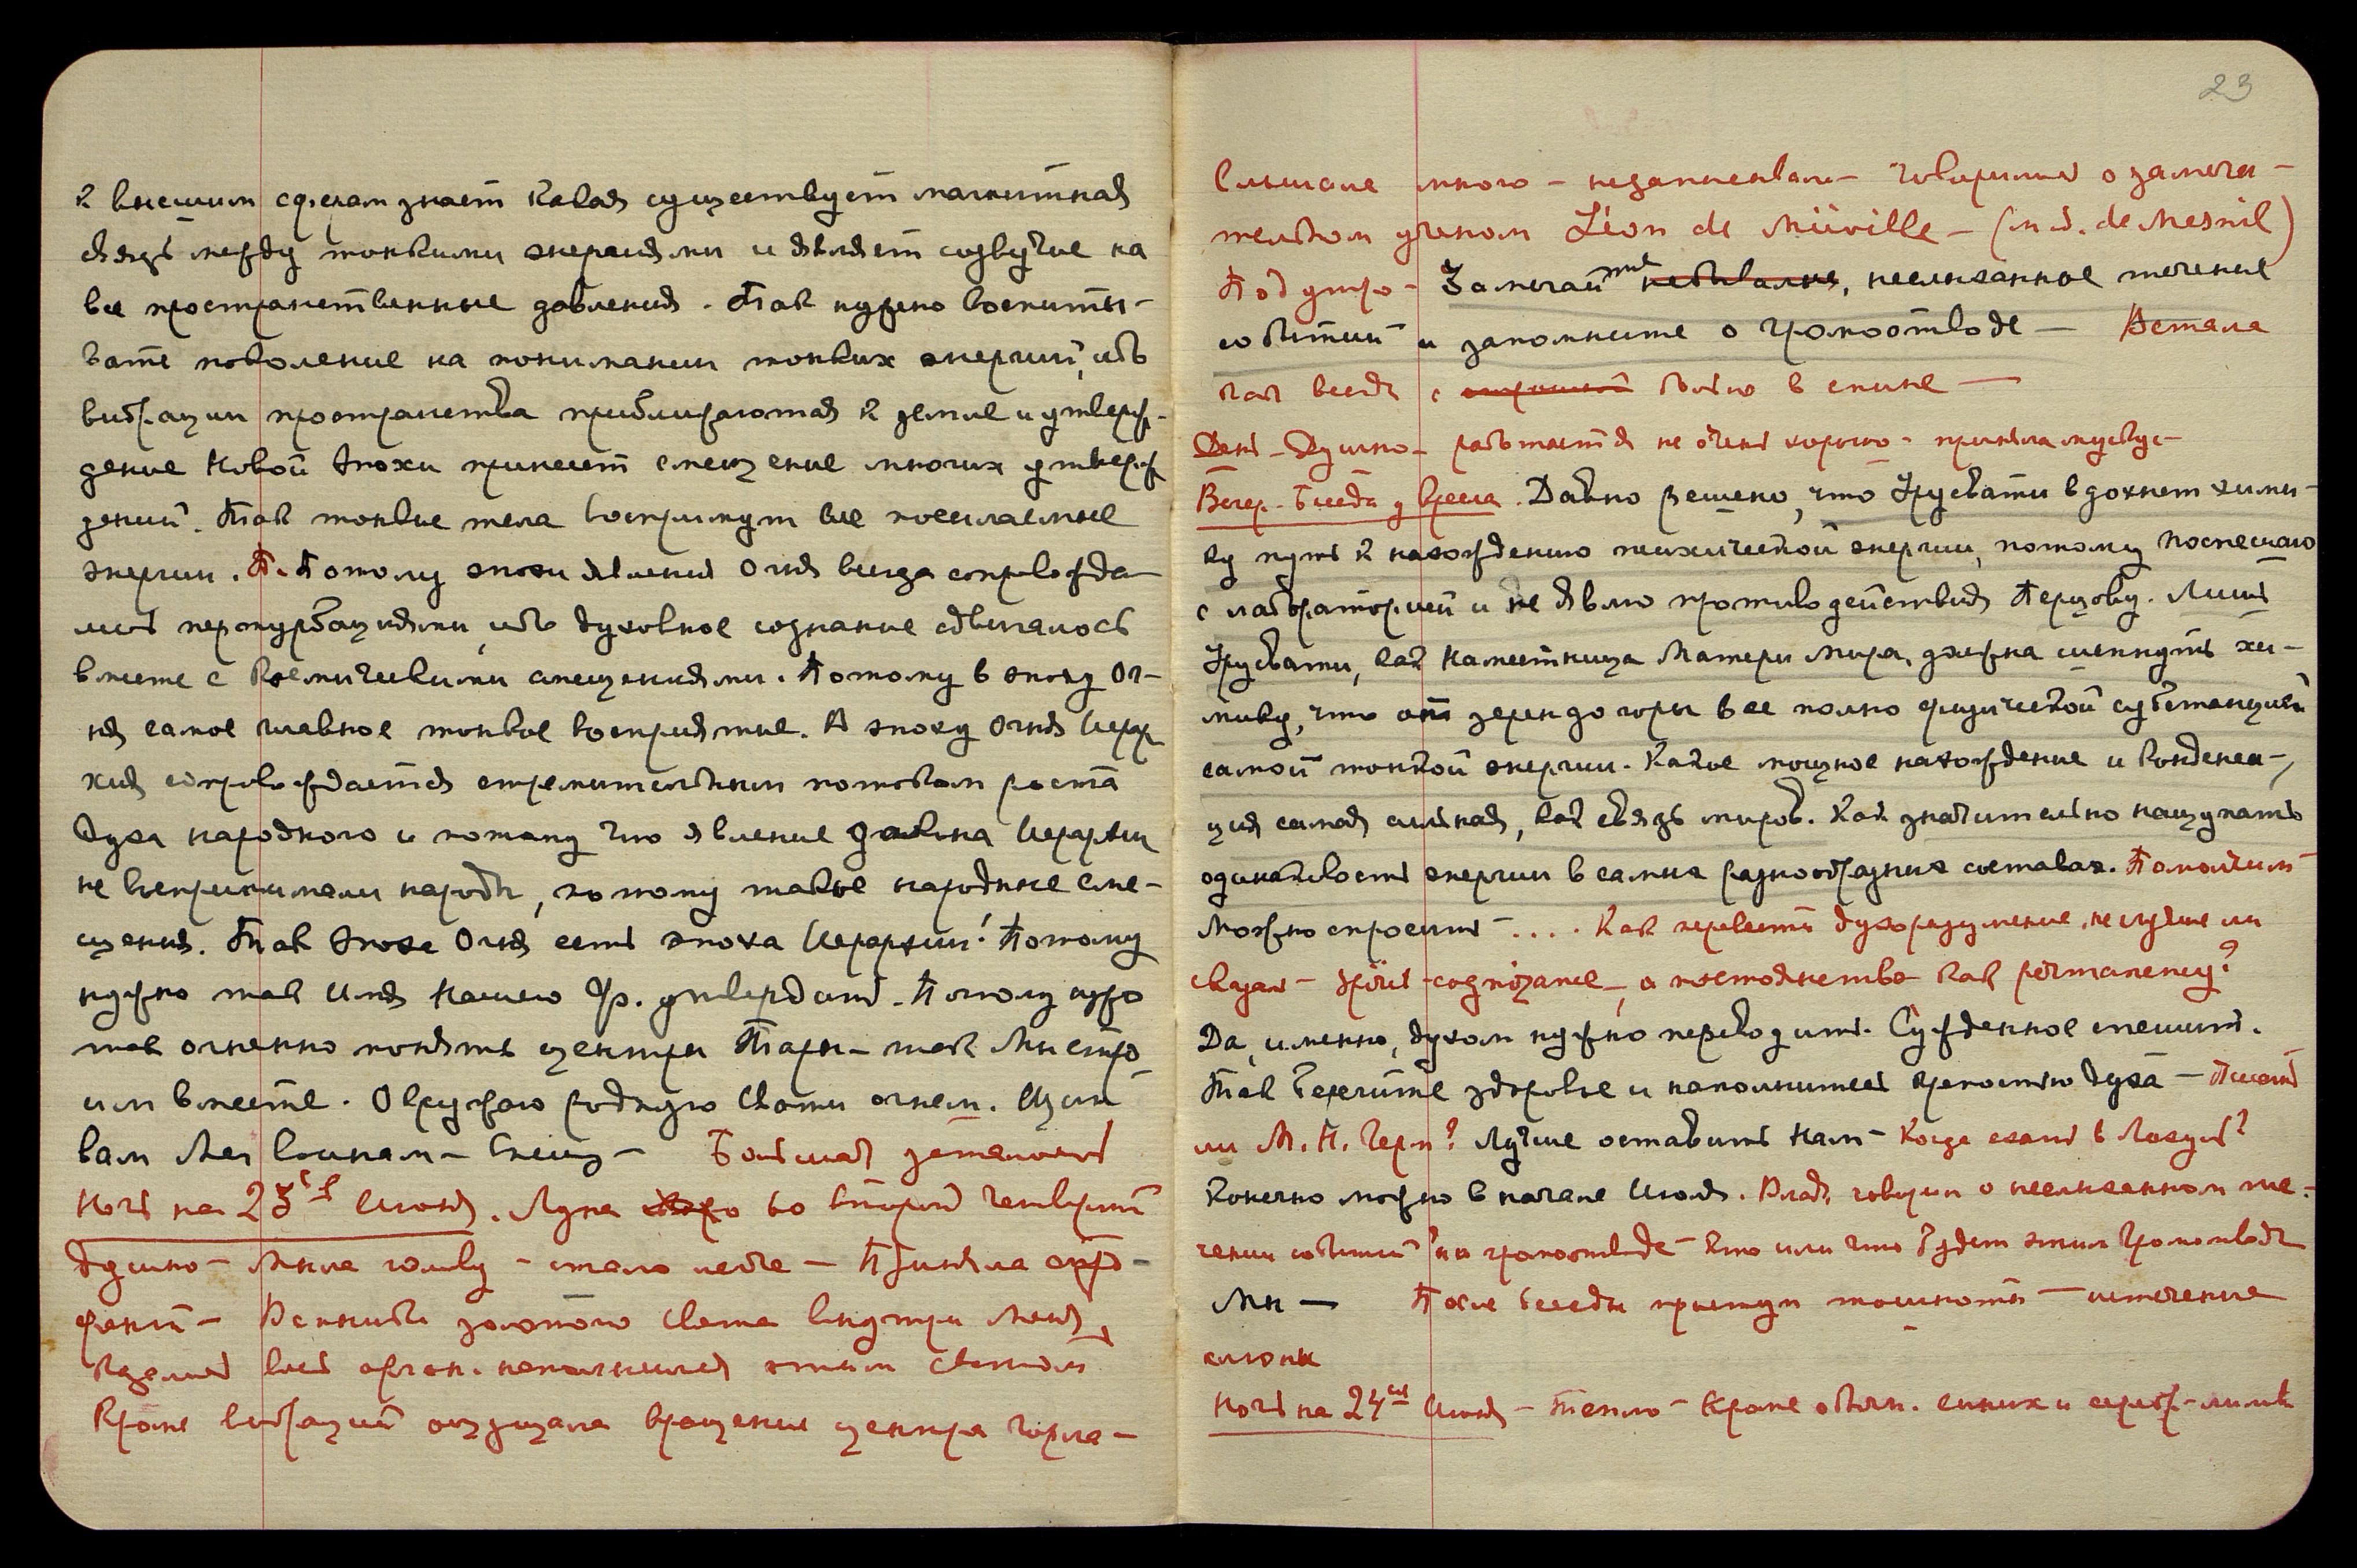 к высшим сферам знает какая существует магнитная
связь между тонкими энергиями и являет созвучие на
все пространственные давления. Так нужно воспиты-
вать поколение на понимании тонких энергий, ибо
вибрации пространства приближаются к земле и утверж-
дение Новой Эпохи принесет смещение многих утверж
дений. Так тонкие тела воспримут все посылаемые
энергии. П. Потому эпохи явления Огня всегда сопровожда
лись пертурбациями, ибо духовное сознание сдвигалось
вместе с космическими смещениями. Потому в эпоху Ог-
ня самое главное тонкое восприятие. А эпоху Огня Иерар
хия сопровождается стремительным потоком роста
духа народного и потому что явление закона Иерархии
не воспринимали народы, потому такое народные сме-
щения. Так Эпоха Огня есть эпоха Иерархии! Потому
нужно так Имя Нашего Гр. утвердить. Потому нужно
так огненно понять центры Тары – так Мы стро
им вместе. Окружаю родную Своим огнем. Щит
вам Мои воинам – Спешу – Большая усталость
Ночь на 23ье Июня. Луна во второй четверти
Душно – Мыла голову – стало легче – Приняла
Вспышка золотого света внутри меня,
казалось весь орган. наполнился этим светом
Кроме вибраций ощущала вращение центра горла –
23
Слышала много – не запомнила – говорилось о замеча-
тельном ученом Léon de Miiville – (м.б. de Mesnil)
Под утро – Замечайте небывалые, неслыханное течение
событий и запомните о громоотводе — Встала
как всегда с больно в спине —
День – Душно – работается не очень хорошо – приняла мускус –
Вечер – Беседа у кресла. Давно решено, что Урусвати вдохнет хими-
ку путь к нахождению психической энергии, потому поспешаю
с лабораторией и не являю противодействия Перцову. Лишь
Урусвати, как Наместница Матери Мира, должна шепнуть хи-
мику, что от зерен до горы все полно физической субстанцией
самой тонкой энергии. Какое мощное нахождение и конденса-
ция самая сильная, как связь миров. Как значительно нащупать
одинаковость энергии в самых разнообразных составах. Помолчим –
Можно спросить – .... Как перевести духоразумение, не лучше ли
сказать – spirit-cognizance –, а постоянство как permanency?
Да, именно, духом нужно переводить. Сужденное спешит.
Так берегите здоровье и наполнитесь крепостью духа – Писать
ли М. Н. Герм? Лучше оставить Нам – Когда ехать в Лахуль?
Конечно можно в начале Июля. Влад. говорил о неслыханном те-
чении событий и громоотводе – Кто или что будет этим громоотводом
Мы — После беседы приступ тошноты – истечение
слюны
Ночь на 24ое Июня – Тепло – Кроме обычн. синих и сереб.